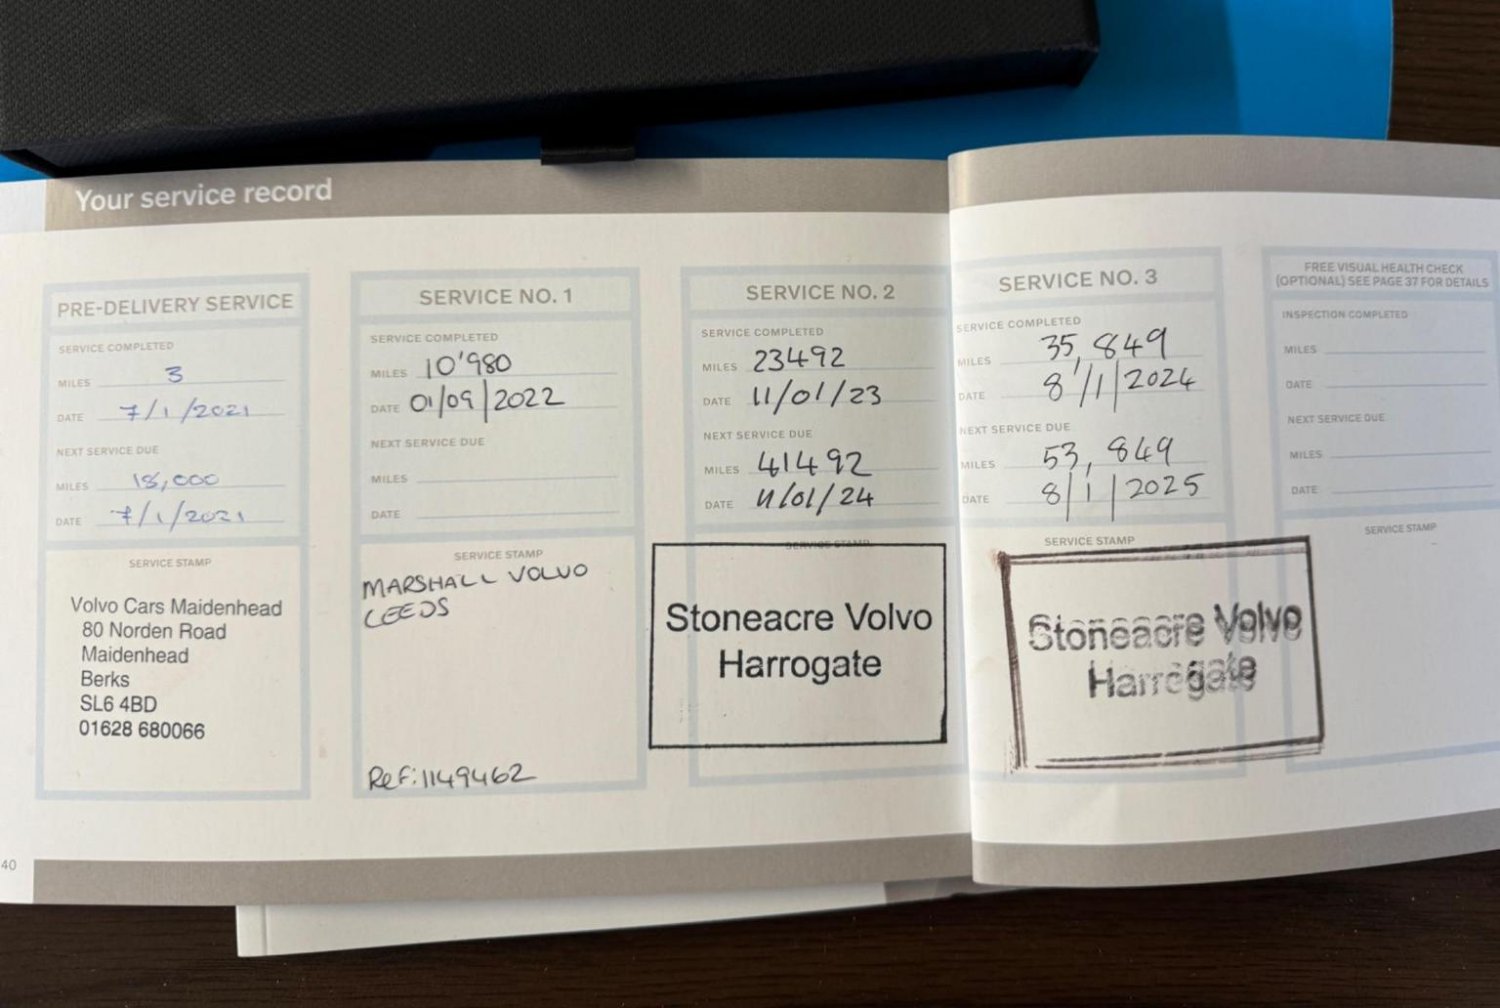 Your service record
PRE-DELIVERY SERVICE
SERVICE COMPLETED
MILES 3
DATE 7/1/2021
NEXT SERVICE DUE
MILES 18,000
DATE 7/1/2021
SERVICE STAMP
Volvo Cars Maidenhead
80 Norden Road
Maidenhead
Berks
SL6 4BD
01628 680066
SERVICE NO. 1
SERVICE COMPLETED
MILES 10'980
DATE 01/09/2022
NEXT SERVICE DUE
MILES
DATE
SERVICE STAMP
MARSHALL VOLVO
LEEDS
Ref:1149462
SERVICE NO. 2
SERVICE COMPLETED
MILES 23492
DATE 11/01/23
NEXT SERVICE DUE
MILES 41492
DATE 11/01/24
SERVICE STAMP
Stoneacre Volvo
Harrogate
SERVICE NO. 3
SERVICE COMPLETED
MILES 35,849
DATE 8/1/2024
NEXT SERVICE DUE
MILES 53,849
DATE 8/1/2025
SERVICE STAMP
Stoneacre Volvo
Harrogate
FREE VISUAL HEALTH CHECK
(OPTIONAL) SEE PAGE 37 FOR DETAILS
INSPECTION COMPLETED
MILES
DATE
NEXT SERVICE DUE
MILES
DATE
SERVICE STAMP
40